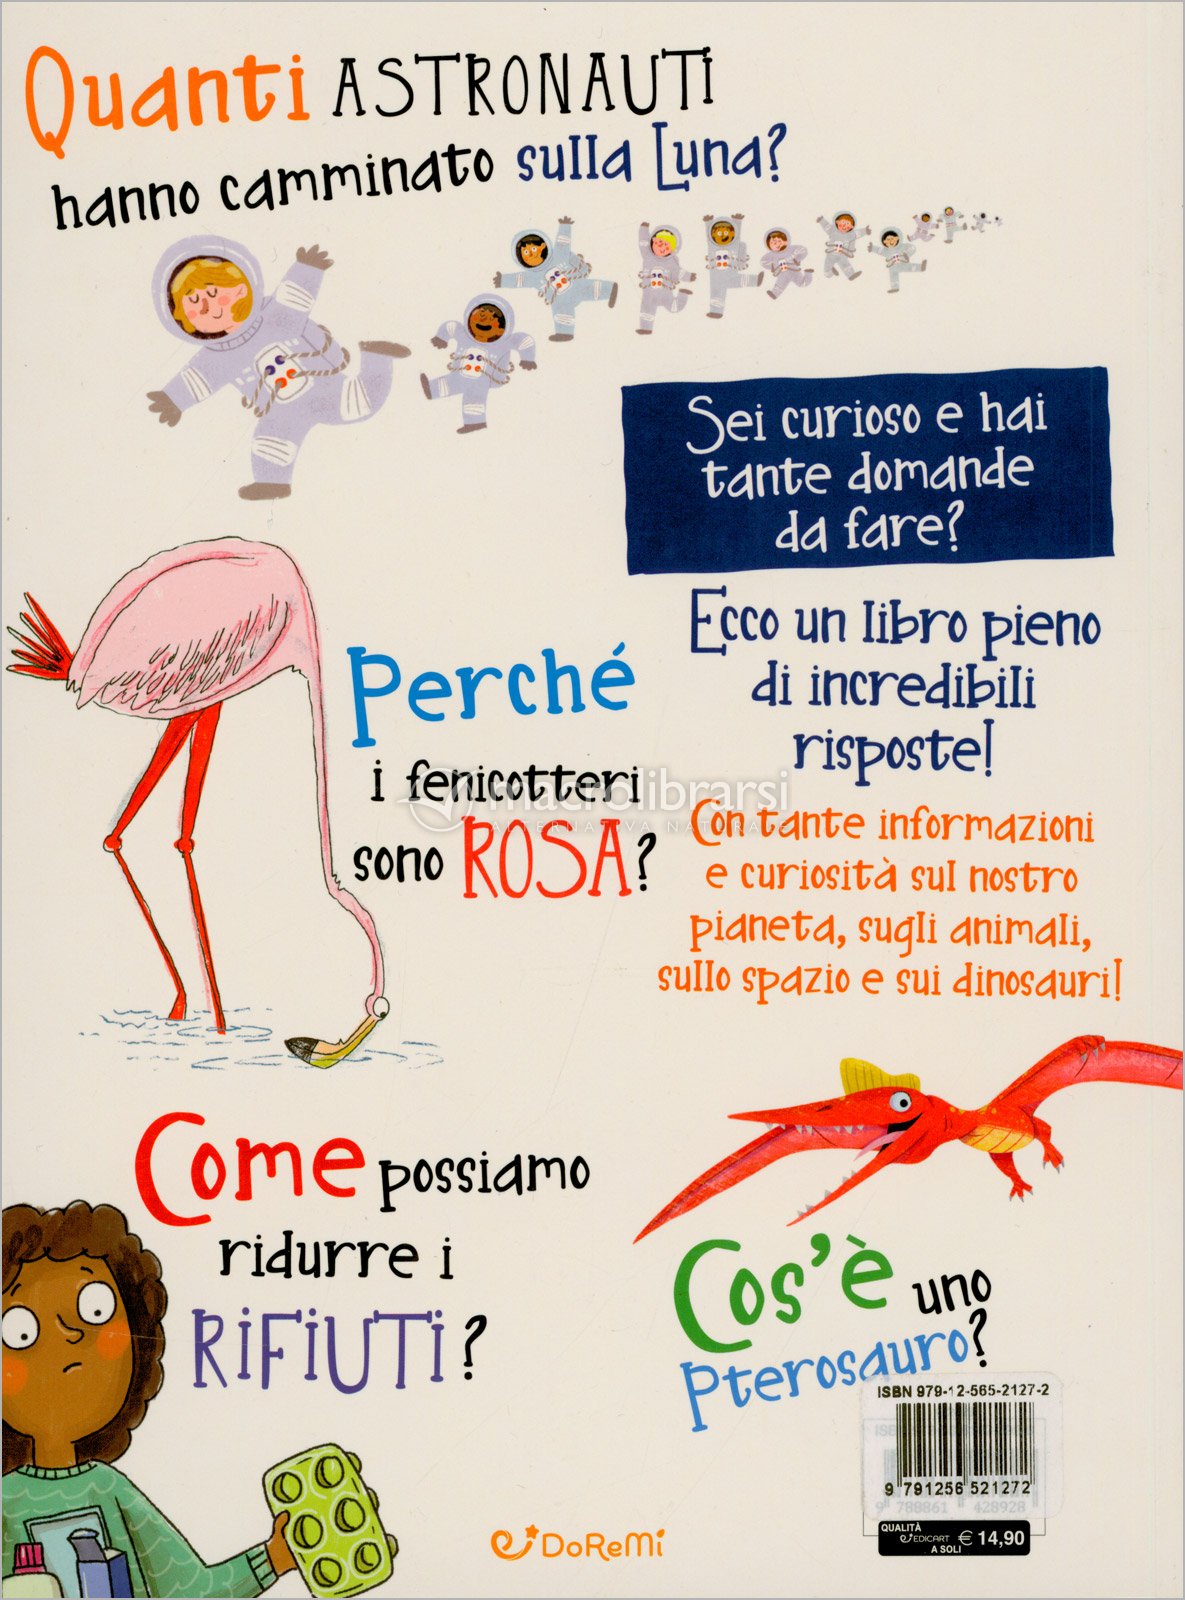 Quanti ASTRONAUTI
hanno camminato sulla Luna?
Sei curioso e hai
tante domande
da fare?
Ecco un libro pieno
di incredibili
risposte!
Con tante informazioni
e curiosità sul nostro
pianeta, sugli animali,
sullo spazio e sui dinosauri!
Perché
i fenicotteri
sono ROSA?
macrolibrarsi
ALTERNATIVA NATURALE
Come possiamo
ridurre i
RIFIUTI?
Cos'è uno
pterosauro?
ISBN 979-12-565-2127-2
9 791256 521272
9 788861 428928
QUALITÀ
EDICART
A SOLI
€ 14,90
DoReMi